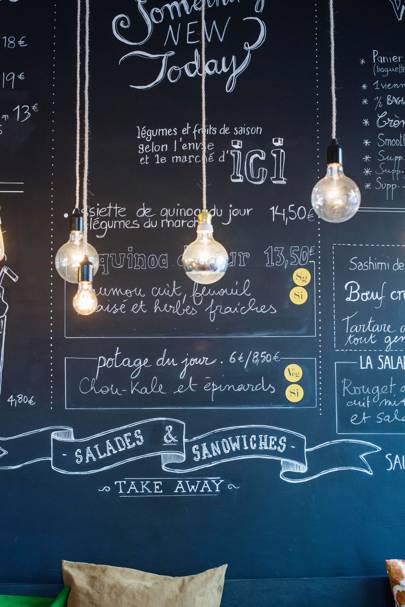 Something
NEW
Today
légumes et fruits de saison
selon l'envie
et le marché d'
ici
assiette de quinoa du jour 14,50€
légumes du marché
quinoa 13,50€
Sg
Si
cuit, fenouil
et herbes fraîches
potage du jour. 6€/8,50€
Veg
Chou-Kale et épinards
Si
SALADES & SANDWICHES
TAKE AWAY
18€
19€
13€
4,80€
* Panier
(baguette
* 1 vienn
* ½ BAG
* Crèm
* Smooth
* Supp.
* Supp.
* Supp.
Sashimi de
Bœuf cr
Tartare
tout gen
LA SALAD
Rouget
cuit mi
et sala
SAL